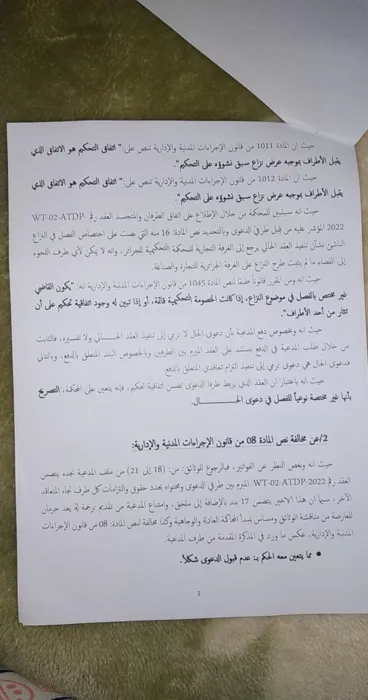 حيث ان المادة 1011 من قانون الإجراءات المدنية والإدارية تنص على:" اتفاق التحكيم هو الاتفاق الذي
يقبل الأطراف بموجبه عرض نزاع سبق نشوؤه على التحكيم".
حيث ان المادة 1012 من قانون الإجراءات المدنية والإدارية تنص على:" اتفاق التحكيم هو الاتفاق الذي
يقبل الأطراف بموجبه عرض نزاع سبق نشوؤه على التحكيم".
حيث انه سيتبين للمحكمة من خلال الإطلاع على اتفاق الطرفان والمتجسد العقد رقم WT-02-ATDP-
2022 المؤشر عليه من قبل طرفي الدعوى وبالتحديد نص المادة: 16 منه التي نصت على اختصاص الفصل في النزاع
الناشئ بشأن تنفيذ العقد الحالي يرجع إلى الغرفة التجارية للمحكمة التحكيمية للجزائر، وانه لا يمكن لأي طرف اللجوء
إلى القضاء ما لم يثبت طرح النزاع على الغرفة الجزائرية للتجارة والصناعة.
حيث انه ومن المقرر قانونا طبقا لنص المادة 1045 من قانون الإجراءات المدنية والإدارية انه: "يكون القاضي
غير مختص بالفصل في موضوع النزاع، إذا كانت الخصومة التحكيمية قائمة، أو إذا تبين له وجود اتفاقية تحكيم على أن
تثار من أحد الأطراف".
حيث انه وبخصوص دفع المدعية بأن دعوى الحال لا ترمي إلى تنفيذ العقد الحـــالي ولا تفسيره، فالثابت
من خلال طلب المدعية في الدفع يستند على العقد المبرم بين الطرفين وبالخصوص البند المتعلق بالدفع، وبالتالي
فدعوى الحال هي دعوى ترمي إلى تنفيذ التزام تعاقدي المتعلق بالدفع.
حيث انه باعتبار ان العقد الذي يربط طرفا الدعوى تضمن اتفاقية تحكيم، فإنه يتعين على المحكمة، التصريح
بأنها غير مختصة نوعياً للفصل في دعوى الحـــــــال.
2/عن مخالفة نص المادة 08 من قانون الإجراءات المدنية والإدارية:
حيث انه وبغض النظر عن الفواتير، فبالرجوع للوثائق: من: (18 إلى 21) من ملف المدعية نجده يتضمن
العقد رقم WT-02-ATDP-2022 المبرم بين طرفي الدعوى ومحتواه يحدد حقوق والتزامات كل طرف تجاه المتعاقد
الآخر، سيما ان هذا الاخير يتضمن 17 بند بالإضافة إلى ملحق، وامتناع المدعية من تقديم ترجمة له يعد حرمان
للعارضة من مناقشة الوثائق ومساس بمبدأ المحاكمة العادلة والوجاهية وكذا مخالفة لنص المادة: 08 من قانون الإجراءات
المدنية والإدارية، عكس ما ورد في المذكرة المقدمة من طرف المدعية.
• مما يتعين معه الحكم بـ: عدم قبول الدعوى شكلاً.
2